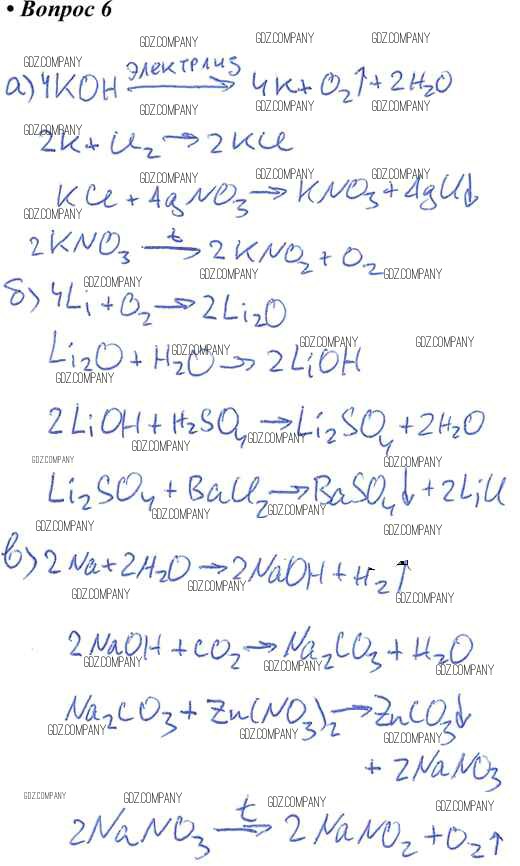 • Вопрос 6
GDZ.COMPANY GDZ.COMPANY GDZ.COMPANY
GDZ.COMPANY
а) 4KOH электролиз → 4K + O₂↑ + 2H₂O
GDZ.COMPANY GDZ.COMPANY GDZ.COMPANY
GDZ.COMPANY
2K + Cl₂ → 2KCl
GDZ.COMPANY GDZ.COMPANY GDZ.COMPANY
GDZ.COMPANY
KCl + AgNO₃ → KNO₃ + AgCl↓
GDZ.COMPANY GDZ.COMPANY GDZ.COMPANY
GDZ.COMPANY
2KNO₃ t → 2KNO₂ + O₂
GDZ.COMPANY GDZ.COMPANY GDZ.COMPANY
б) 4Li + O₂ → 2Li₂O
GDZ.COMPANY GDZ.COMPANY GDZ.COMPANY
Li₂O + H₂O → 2LiOH
GDZ.COMPANY
2LiOH + H₂SO₄ → Li₂SO₄ + 2H₂O
GDZ.COMPANY GDZ.COMPANY
GDZ.COMPANY GDZ.COMPANY
Li₂SO₄ + BaCl₂ → BaSO₄↓ + 2LiCl
GDZ.COMPANY GDZ.COMPANY GDZ.COMPANY
GDZ.COMPANY
в) 2Na + 2H₂O → 2NaOH + H₂↑
GDZ.COMPANY GDZ.COMPANY GDZ.COMPANY
2NaOH + CO₂ → Na₂CO₃ + H₂O
GDZ.COMPANY GDZ.COMPANY GDZ.COMPANY
Na₂CO₃ + Zn(NO₃)₂ → ZnCO₃↓
GDZ.COMPANY GDZ.COMPANY GDZ.COMPANY
+ 2NaNO₃
GDZ.COMPANY GDZ.COMPANY GDZ.COMPANY GDZ.COMPANY
2NaNO₃ t → 2NaNO₂ + O₂↑
GDZ.COMPANY GDZ.COMPANY GDZ.COMPANY